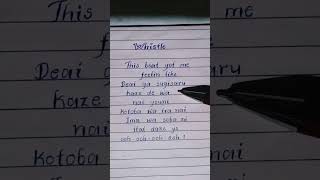 Whistle
This beat got me
feelin like
Deai ga sugisaru
Kaze de wa
nai youni
Kotoba wa ira nai
Ima wa soba ni
itai dake yo
ooh-ooh-ooh ooh!